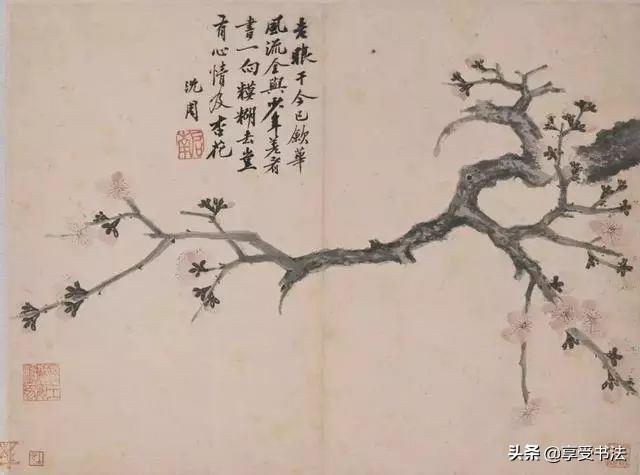 老眼于今已歛華
風流全與少年差看
書一向糢糊去豈
有心情及杏花
沈周
头条 @享受书法